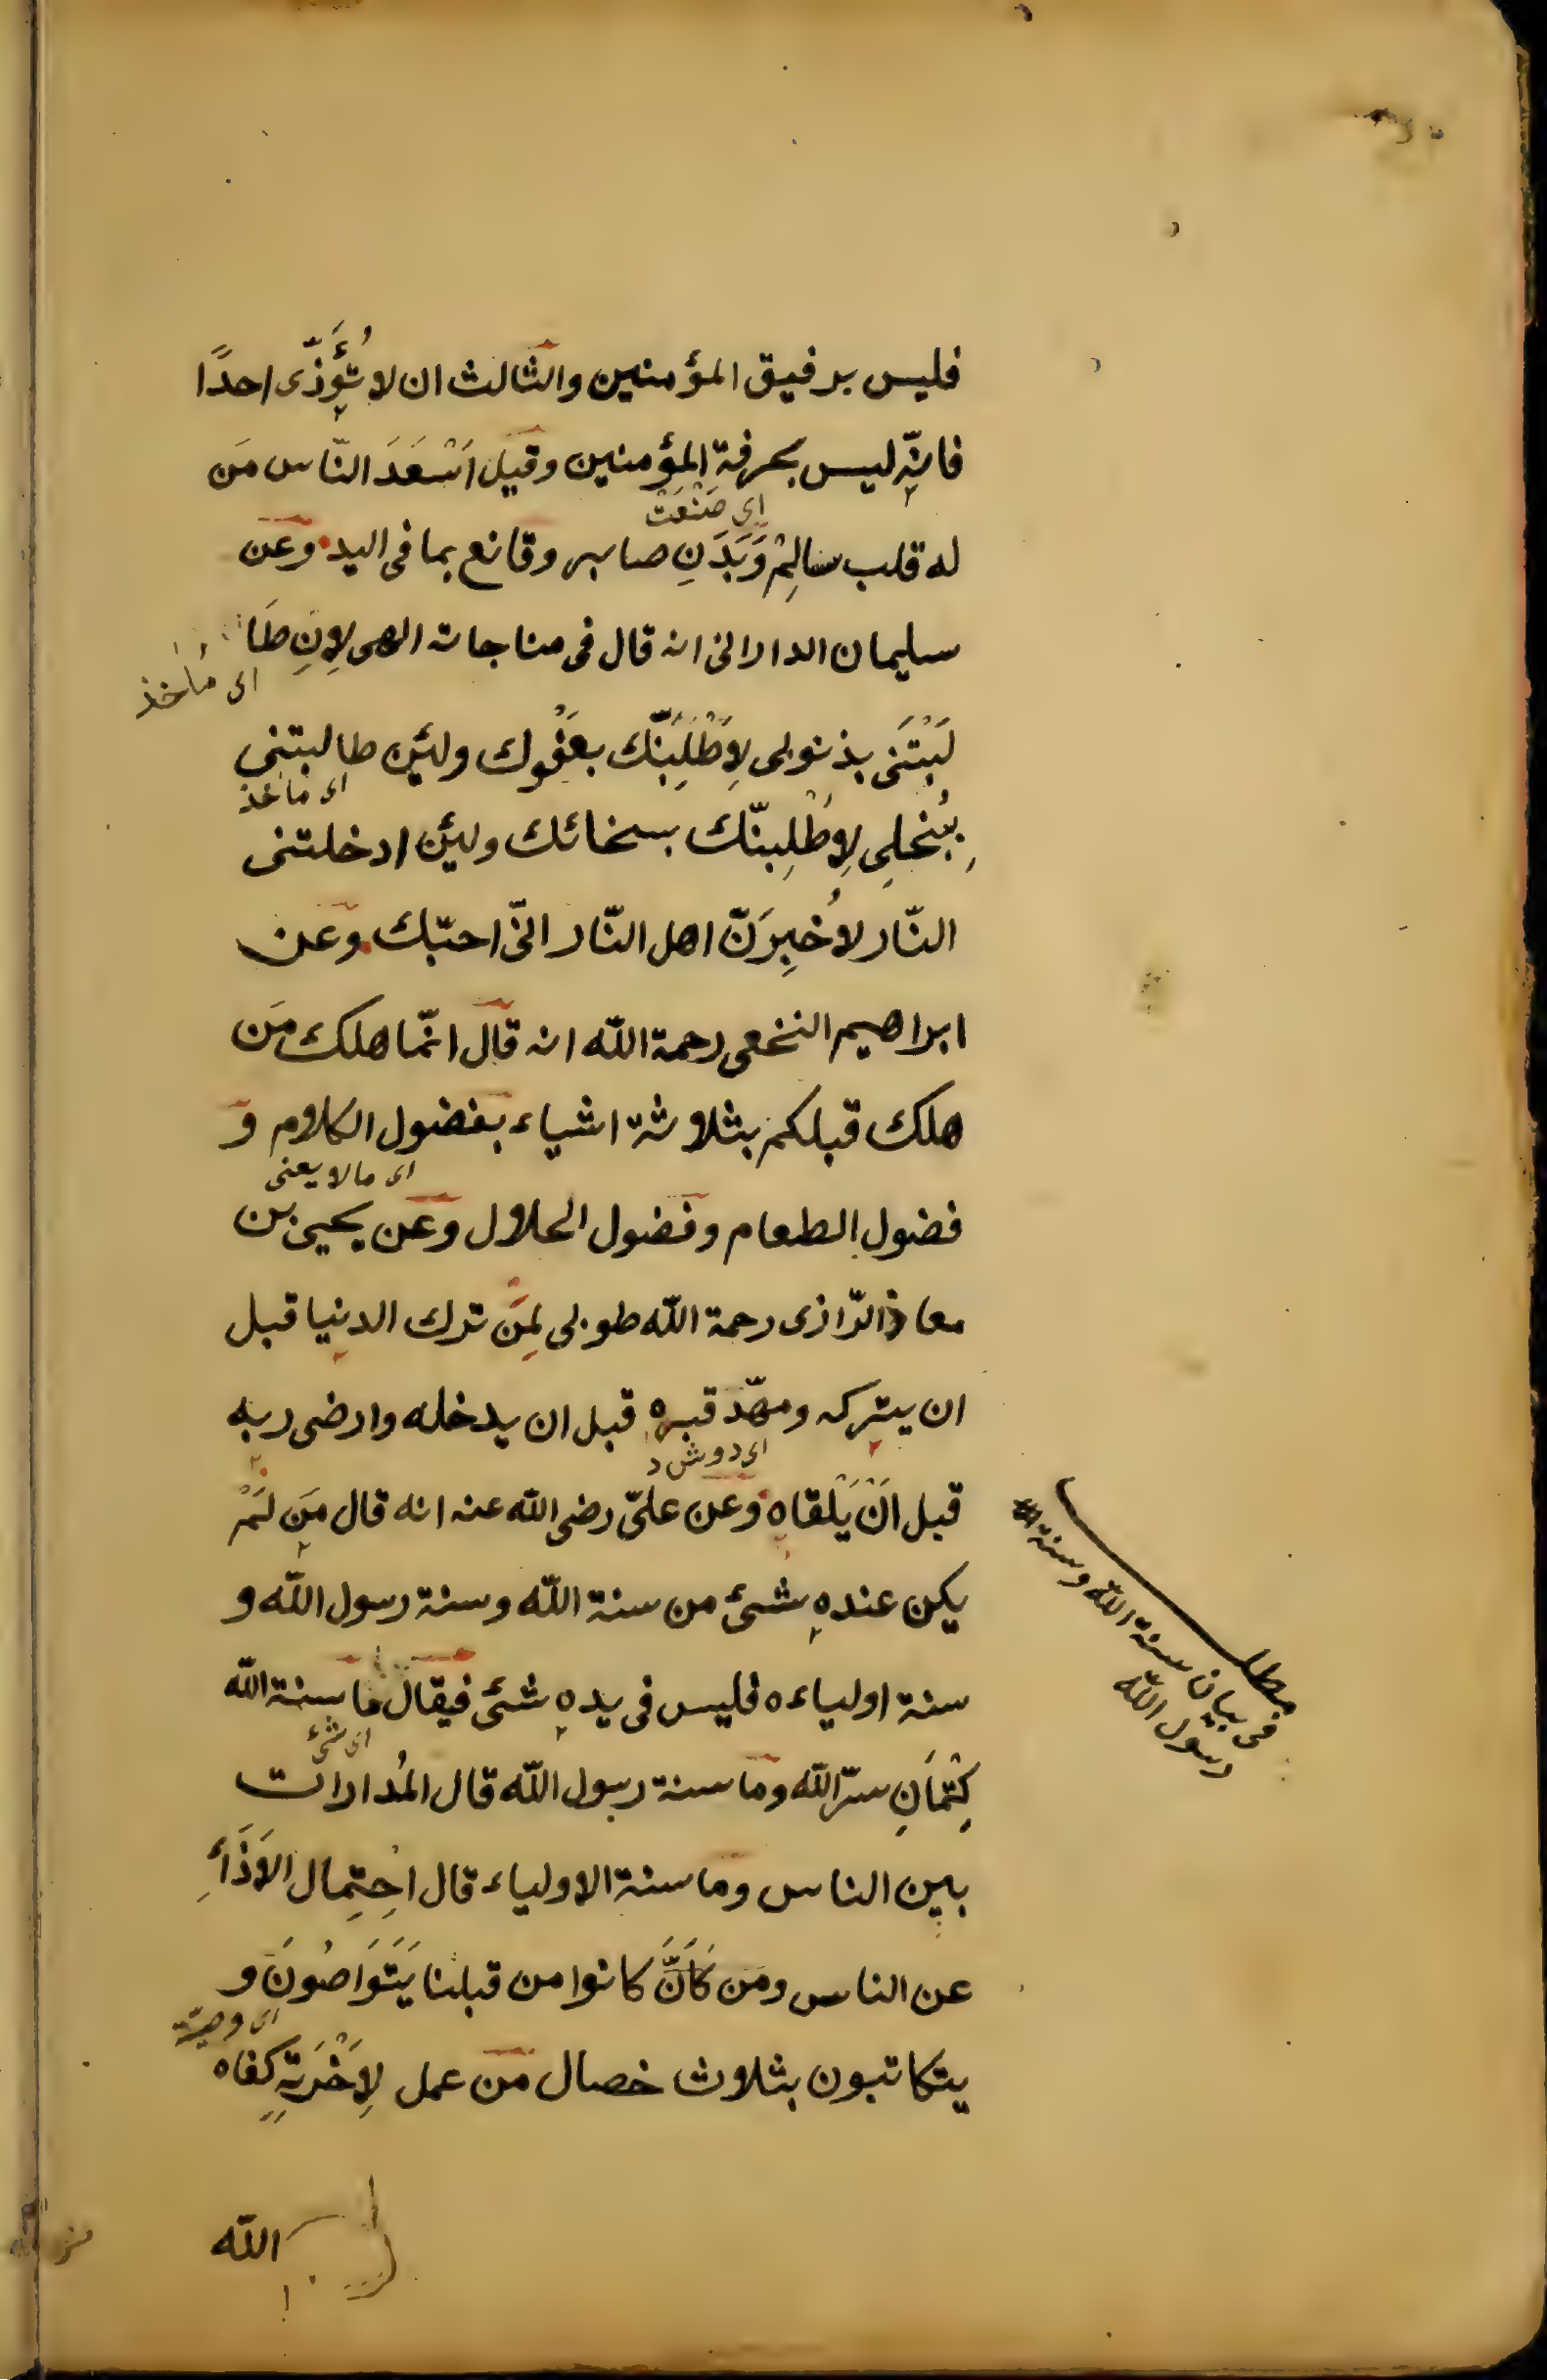 فليس برفيق المؤمنين والثالث ان لا تُؤَذّى احدًا
فانّه ليس بحرفة المؤمنين وقيل اَسْعَدَ النّاس مَن
اى صَنْعَتْ
له قلب سالِمْ وَبَدَنِ صابر وقانع بما فى اليد وعَن
سليمان الدارانى انه قال فى مناجاته الهى لاِنِ طَا
اى مُأخذ
لَبْتَنى بذنوبى لاَِطْلُبَنَّك بعَفْوك ولئِن طالبتنى
اى مأخذ
بِبُخلِى لاِطْلِبنّك بسخائك ولئِن ادخلتنى
النّار لاُخبِرَنّ اهل النّار انّى احبّك وعَن
ابراهيم النخعى رحمة الله انه قال انّما هلك مَن
هلك قبلكم بثلاثة اشياء بفضول الكلام وَ
اى مالا يعنى
فضول الطعام وفضول الحلال وعَن يحيى بن
معاذ الرّازى رحمة الله طوبى لِمَن ترك الدنيا قبل
ان يتركه ومهّد قبره قبل ان يدخله وارضى ربه
اى دوشد
قبل اَنْ يَلْقاه وعَن علىّ رضى الله عنه انه قال مَن لَمْ
يكن عنده شئ من سنة الله وسنة رسول الله و
سنة اولياءه فليس فى يده شئ فيقال ما سنة الله
اى شئ
كِتْمَانِ سرّ الله وما سنة رسول الله قال المُدارات
بين الناس وما سنة الاولياء قال اِحتِمال الاَذَأِ
عن الناس ومَن كَاَنَّ كانوا من قبلنا يَتَوَاصُونَ و
اى وصيّة
يتكاتبون بثلاث خصال مَن عمل لاِخْرَتِهِ كفاه
الله
مطلب
فى بيان سنة الله وسنة
رسول الله